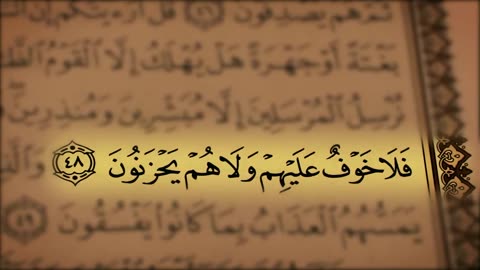 ثُمَّ هُمْ يَصْدِفُونَ ٤٦ قُلْ أَرَءَيْتَكُمْ إِنْ
بَغْتَةً أَوْ جَهْرَةً هَلْ يُهْلَكُ إِلَّا ٱلْقَوْمُ
نُرْسِلُ ٱلْمُرْسَلِينَ إِلَّا مُبَشِّرِينَ وَمُنذِرِينَ
فَلَا خَوْفٌ عَلَيْهِمْ وَلَا هُمْ يَحْزَنُونَ ٤٨
يَمَسُّهُمُ ٱلْعَذَابُ بِمَا كَانُوا۟ يَفْسُقُونَ ٤٩